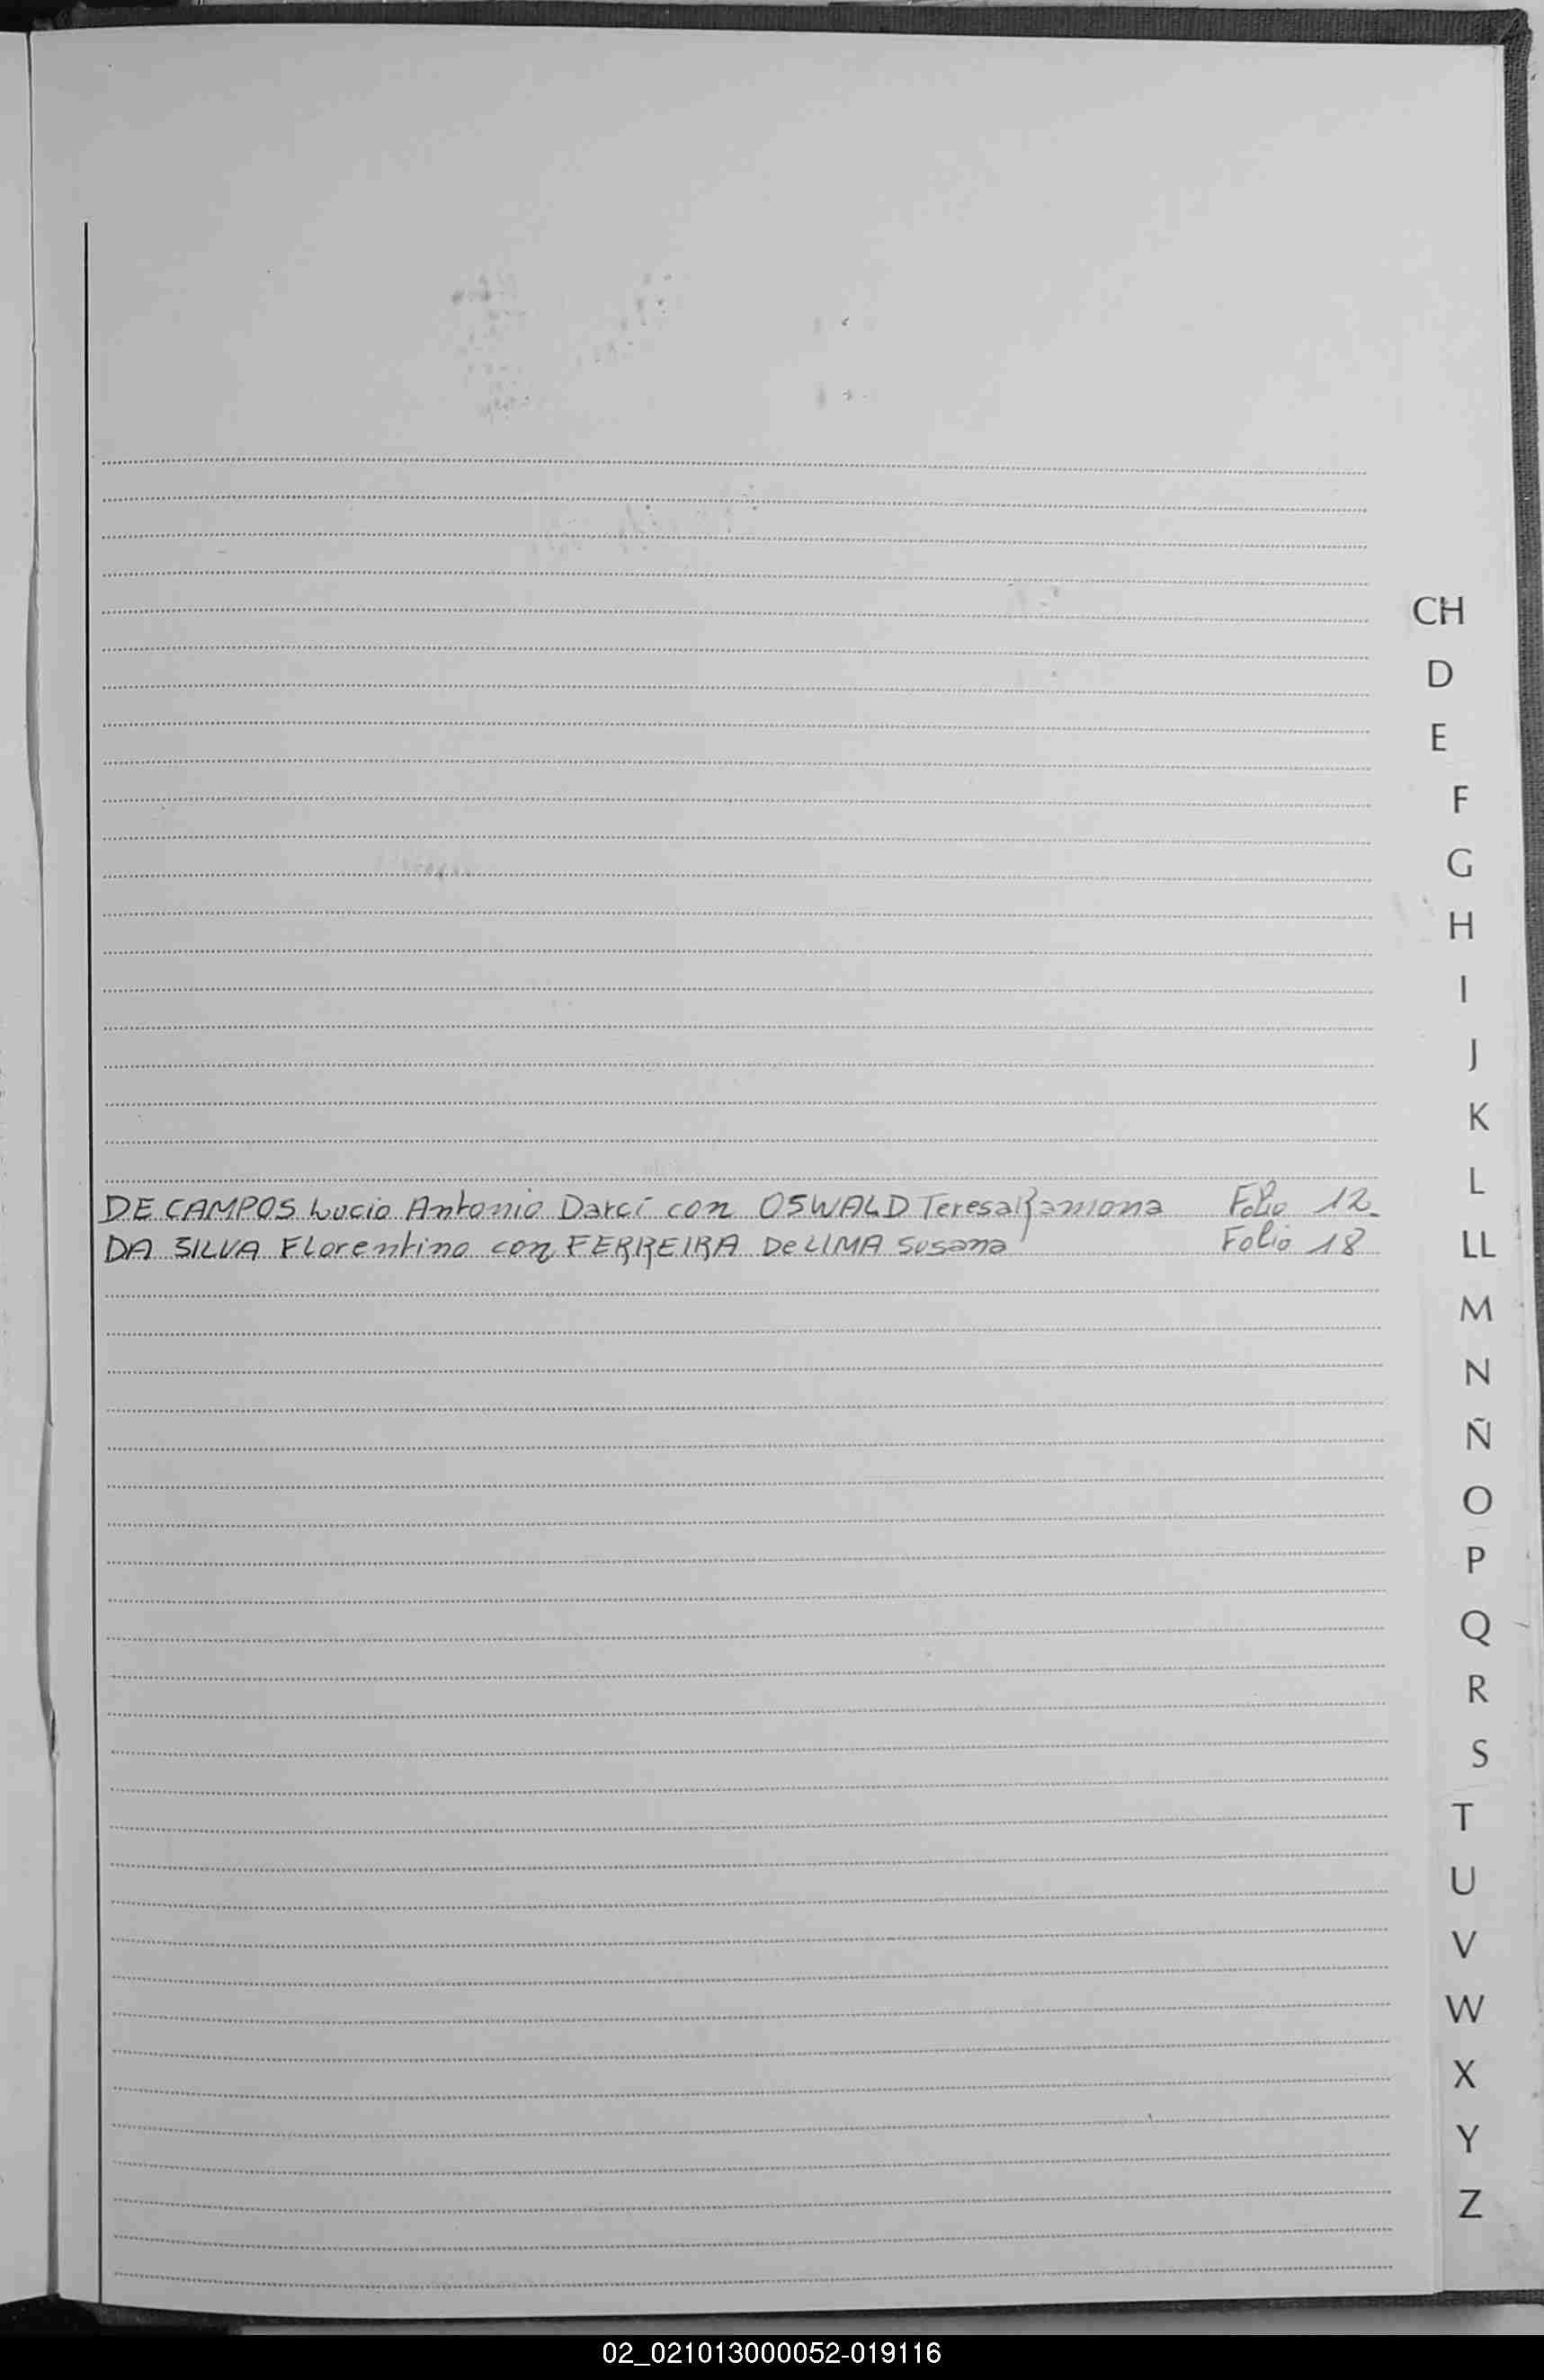 CH
D
E
F
G
H
I
J
K
L
DE CAMPOS Lucio Antonio Darcí con OSWALD Teresa Ramona Folio 12
DA SILVA Florentino con FERREIRA De LIMA Susana Folio 18
LL
M
N
Ñ
O
P
Q
R
S
T
U
V
W
X
Y
Z
02_021013000052-019116